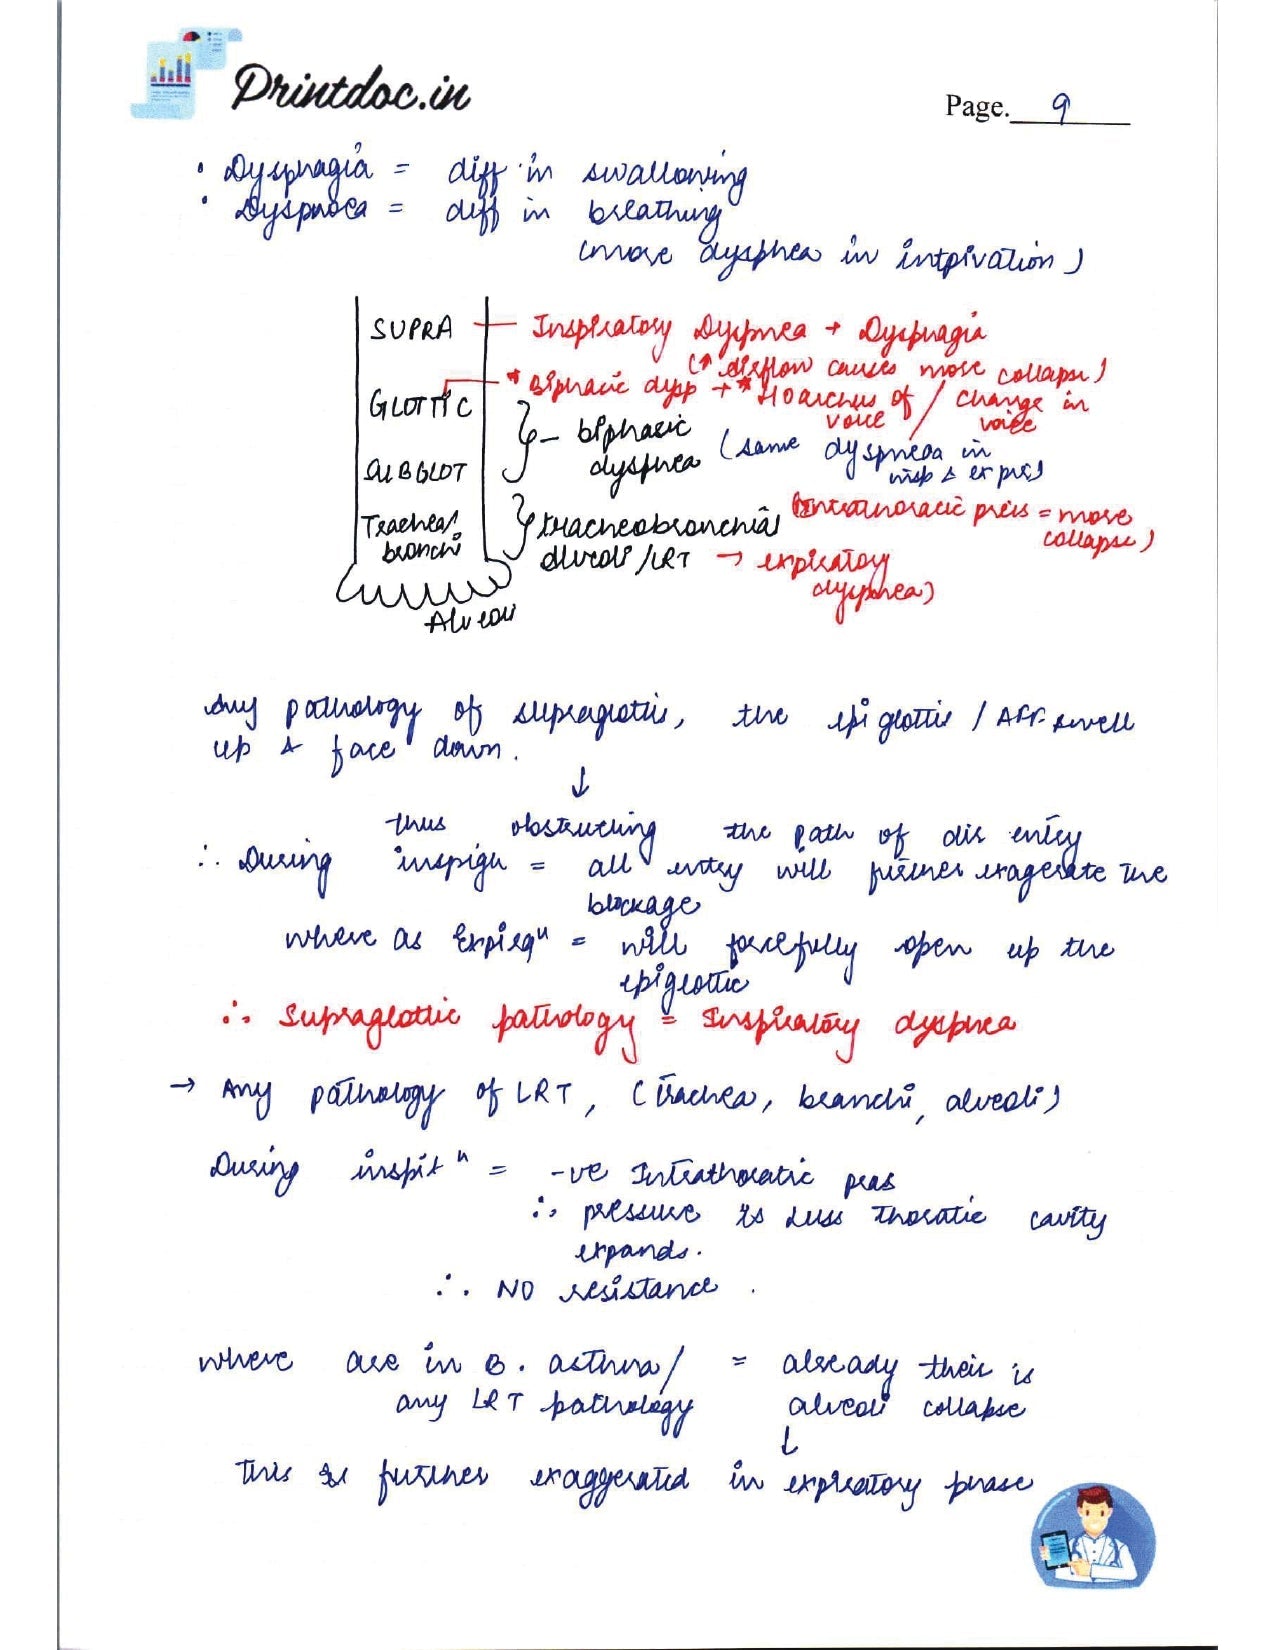 Printdoc.in
Page. 9
• Dysphagia = diff in swallowing
• Dyspnoea = diff in breathing
(more dysphea in intpivation)
SUPRA — Inspiratory Dyspnea + Dysphagia
(↑ airflow causes more collapse)
GLOTTIC * Biphasic dysp + * Hoarchus of voice / change in voice
} – biphasic dysphea (same dyspneoa in insp & expis)
SUBGLOT
Tracheal bronchi } tracheobronchial alveoli/LRT → expiratory dysphea)
(intrathoracic pres = more collapse)
Alveoli
Any pathology of supraglottis, the epiglottis / AEF swell
up & face down.
↓
thus obstructing the path of air entry
∴ During inspign = all entry will further exagerate the
blockage
where as Expirqn = will forcefully open up the
epiglottic
∴ Supraglottic pathology = Inspiratory dyspnea
→ Any pathology of LRT, (trachea, branchi, alveoli)
During inspitn = -ve Intrathoratic pras
∴ pressure is less thoratic cavity
expands.
∴ NO resistance.
where are in B. asthma/ = already their is
any LRT pathology alveoli collapse
↓
This is further exaggerated in expiratory phase